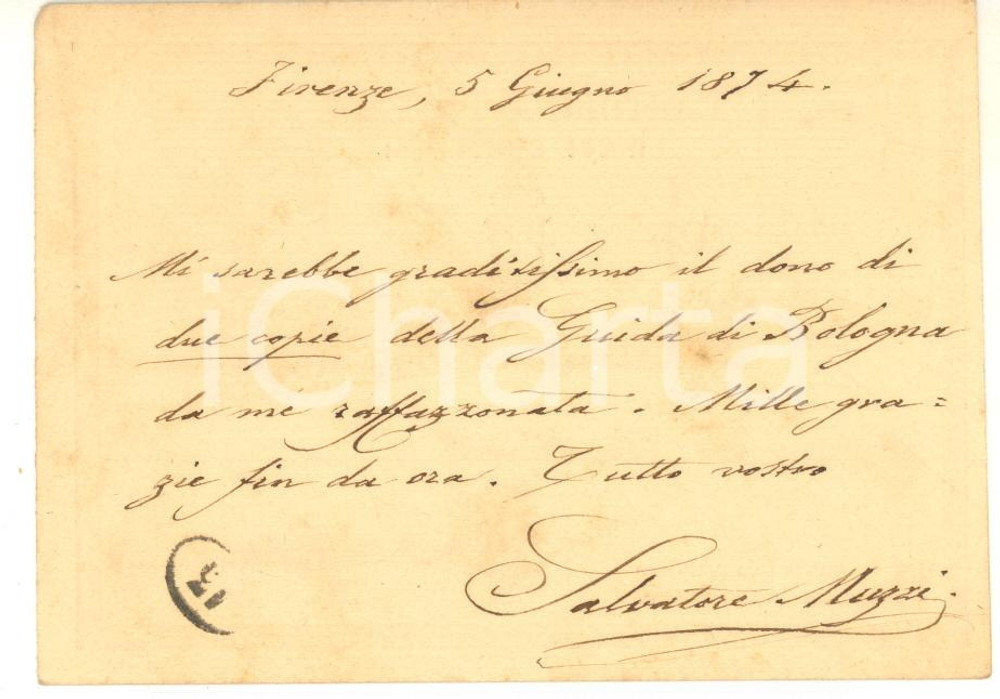 Firenze, 5 Giugno 1874.
Mi sarebbe graditissimo il dono di
due copie della Guida di Bologna
da me raffazzonata. Mille gra=
zie fin da ora. Tutto vostro
Salvatore Muzzi.
iCharta